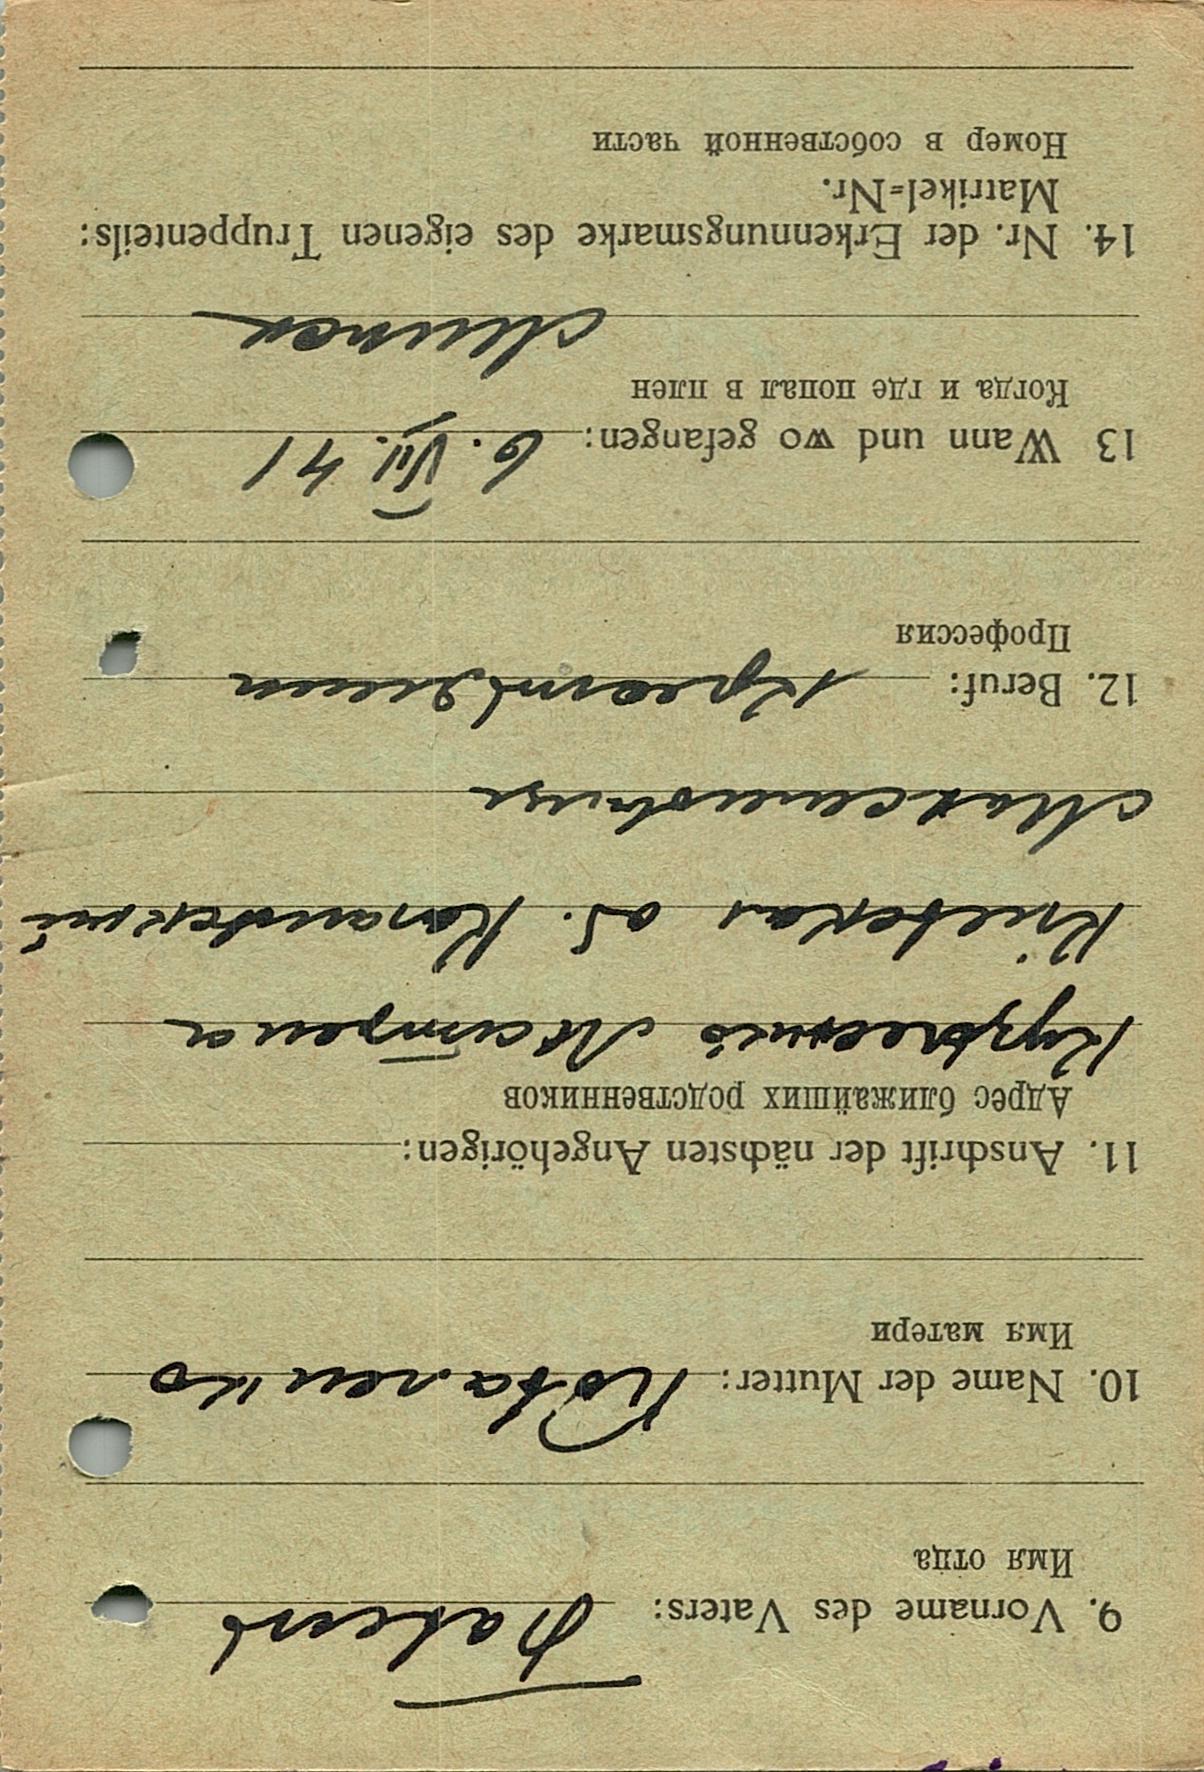 9. Vorname des Vaters:
Имя отца
10. Name der Mutter: Коваленко
Имя матери
11. Anschrift der nächsten Angehörigen:
Адрес ближайших родственников
Киевская об.
12. Beruf:
Профессия
13 Wann und wo gefangen: 6. VII. 41
Когда и где попал в плен
Минск
14. Nr. der Erkennungsmarke des eigenen Truppenteils:
Matrikel=Nr.
Номер в собственной части